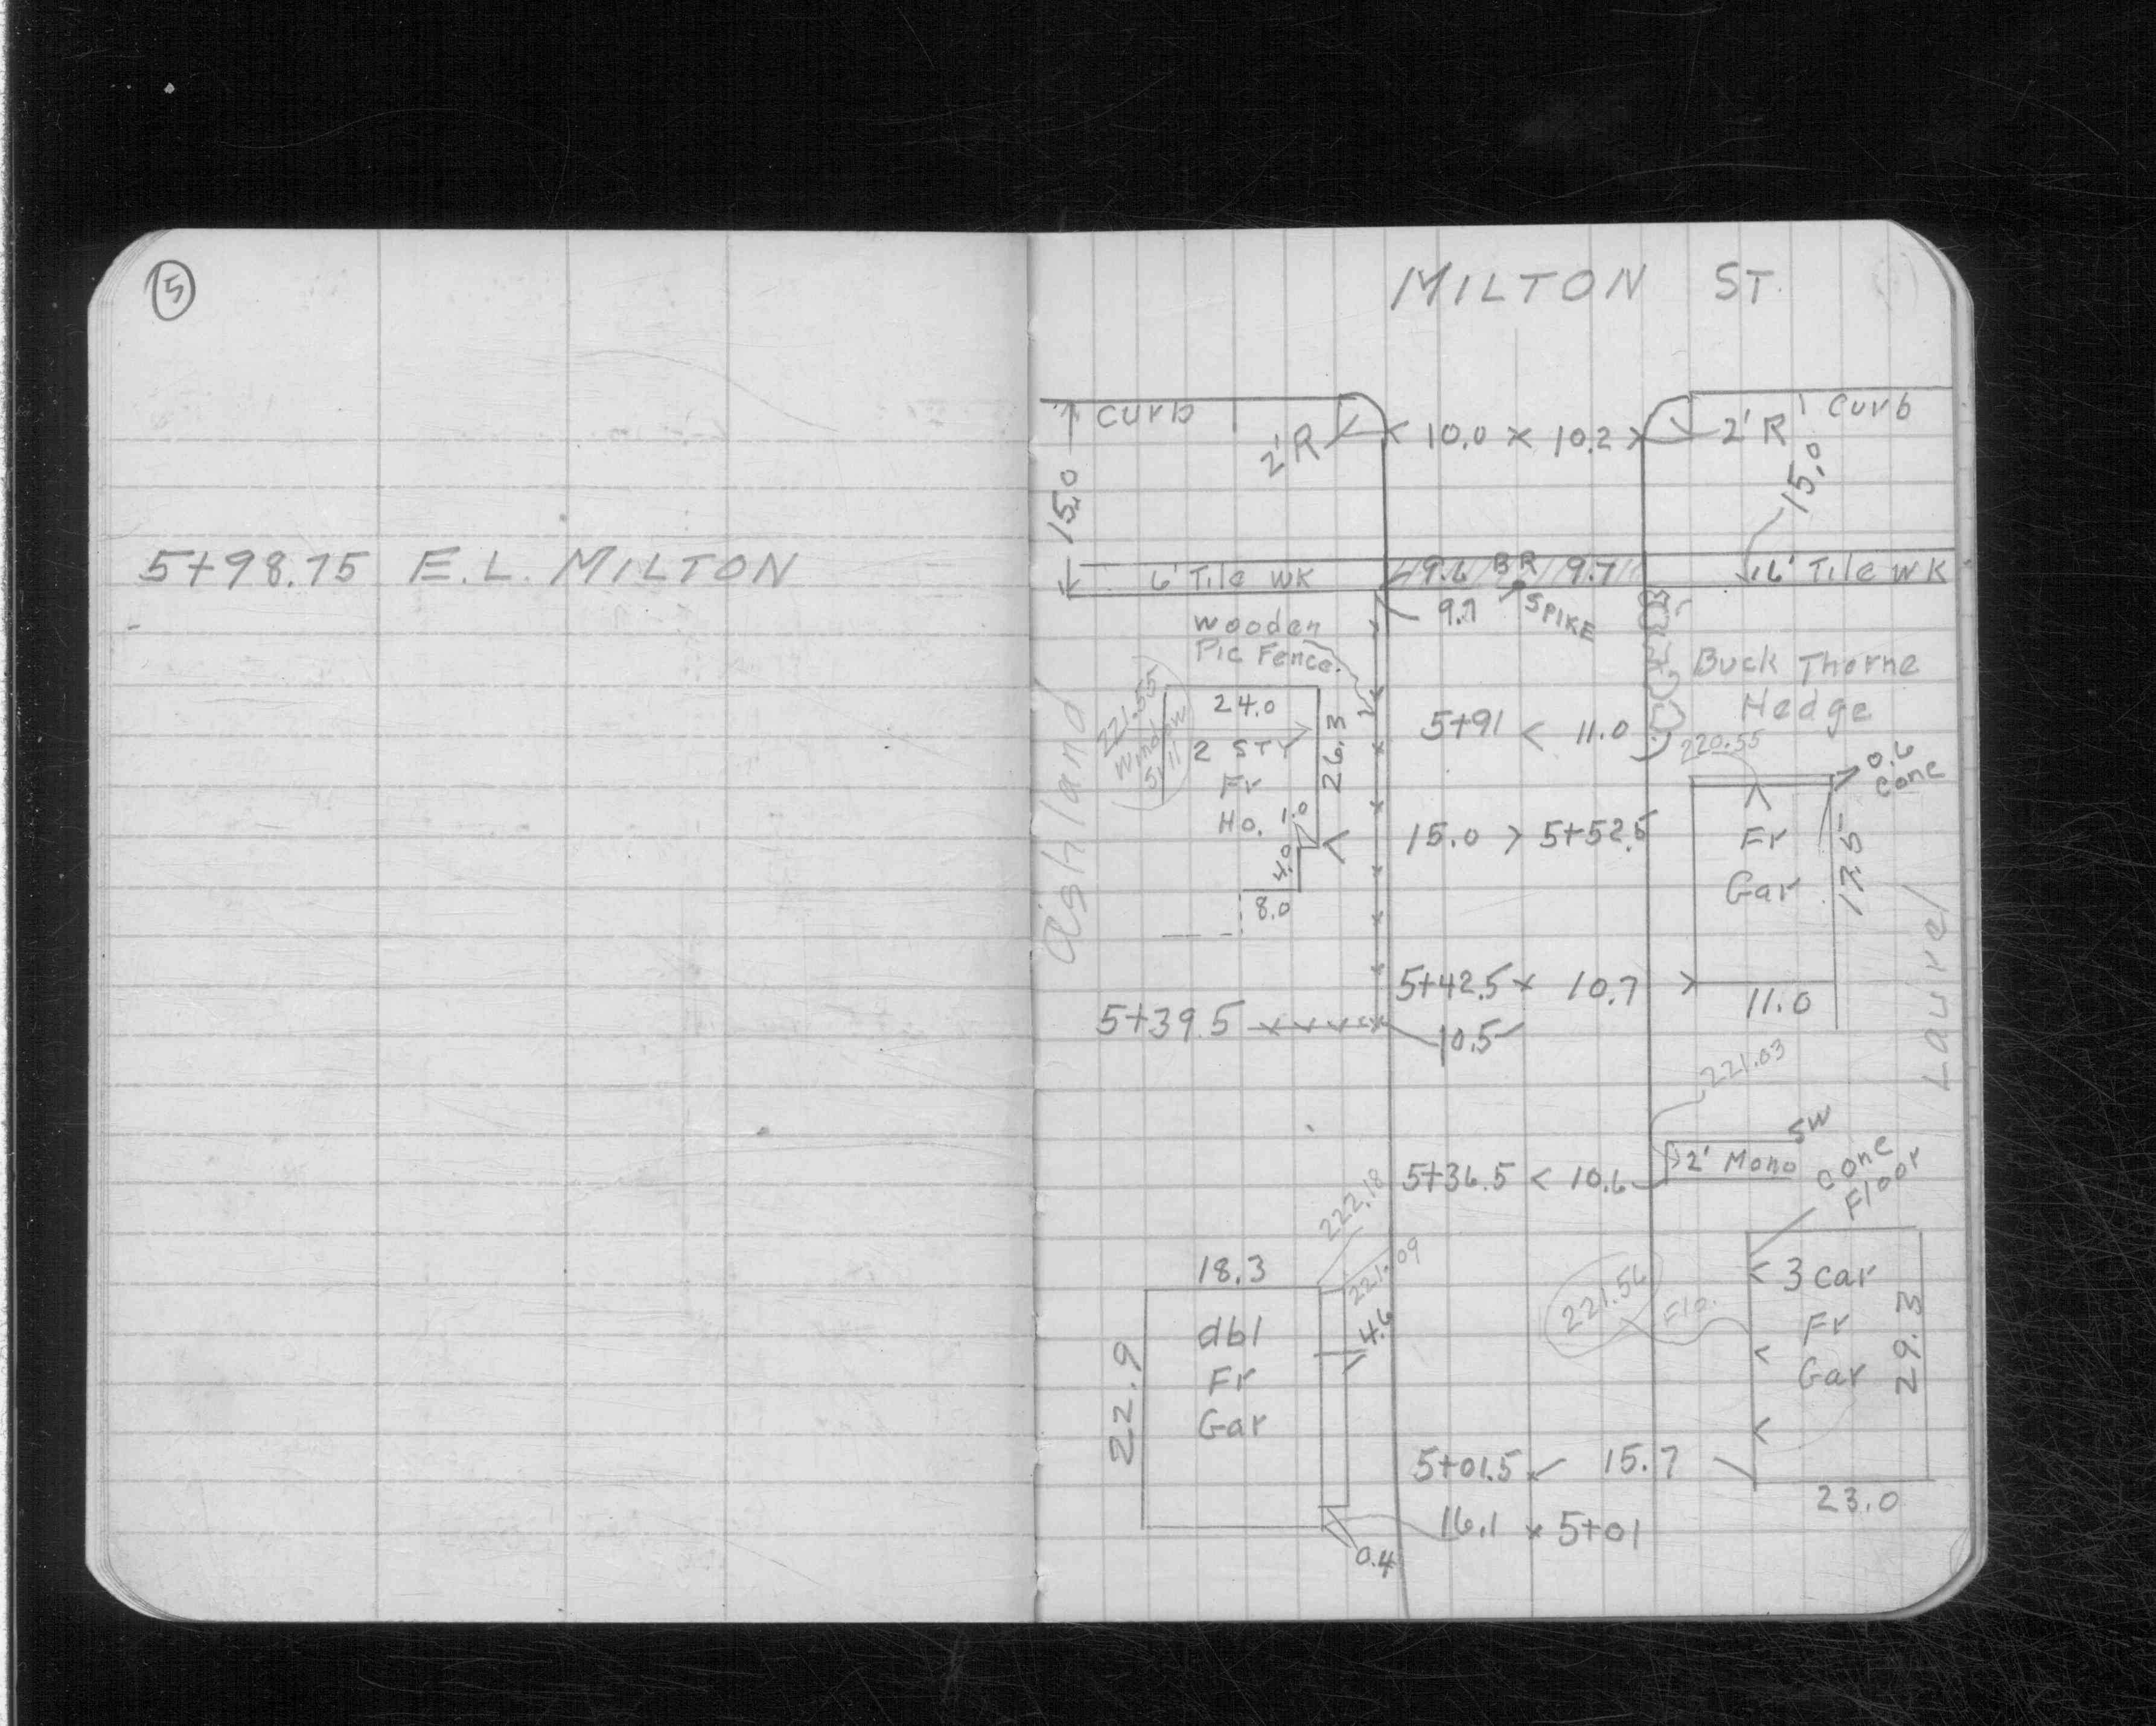 5
5+98.75 E.L. MILTON
MILTON ST.
curb
2'R
10.0 x 10.2
2'R
curb
15.0
15.0
6' Tile WK
9.6 BR 9.7
6' Tile WK
9.7
SPIKE
wooden
Pic Fence
Buck Thorne
Hedge
221.55
Window
Sill
24.0
2 STY
Fr
Ho.
26.3
1.0
4.0
8.0
5+91 < 11.0
220.55
0.6
conc
15.0 > 5+52.5
Fr
Gar
17.5
11.0
Ashland
Laurel
5+42.5 x 10.7
5+39.5
10.5
221.03
5+36.5 < 10.6
2' Mono SW
conc
Floor
222.18
221.09
18.3
dbl
Fr
Gar
22.9
4.6
221.56 Flo.
3 car
Fr
Gar
29.3
5+01.5 15.7
23.0
16.1 x 5+01
0.4